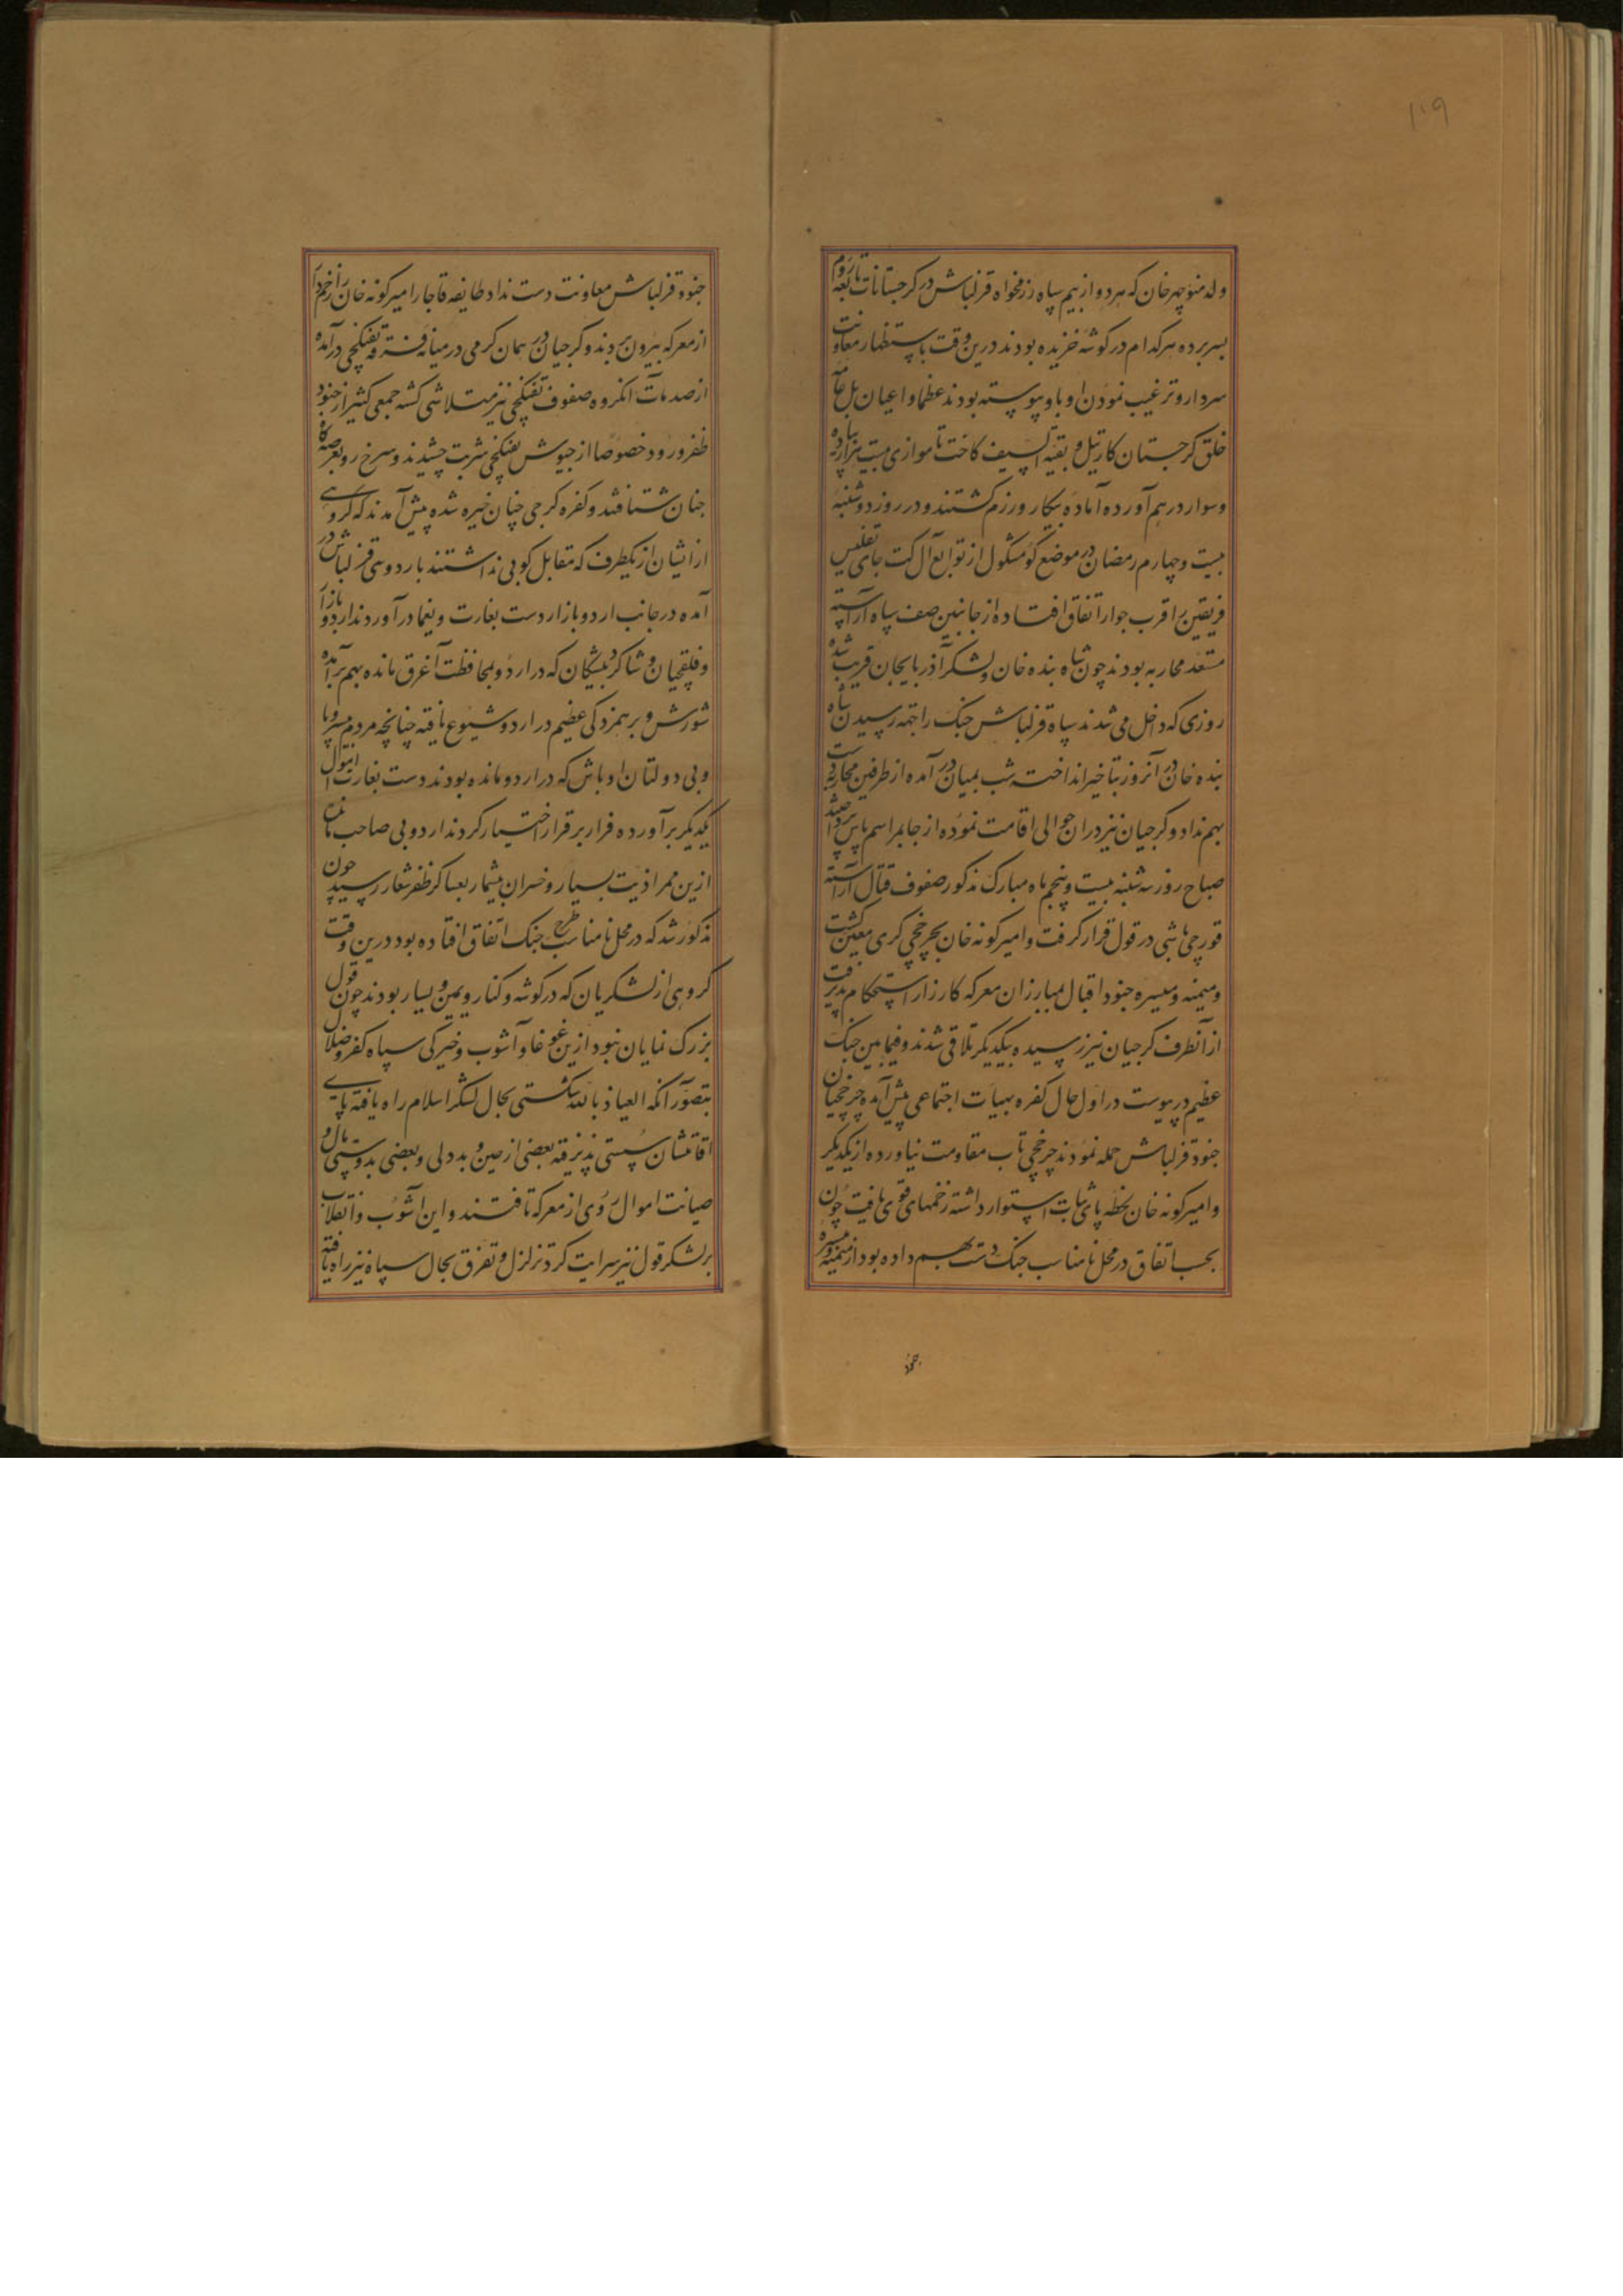 ۱۰۹
ولد منوچهر خان که هر دو از بیم سپاه رزمخواه قزلباش در کرجستانات تابعه روم
بسر برده هر کدام در کوشه خزیده بودند درین وقت باستظهار معاونت
سردار و ترغیب نمودن او باو پیوسته بودند عظما و اعیان بل عامه
خلق کرجستان کارتیل و بقیة السیف کاخت تا موازی بیست هزار پیاده
و سوار درهم آورده آماده پیکار و رزم کشتند و در روز دوشنبه
بیست و چهارم رمضان در موضع کومشکول از توابع آل کت جای تفلیس
فریقین را قرب جوار اتفاق افتاده از جانبین صف سپاه آراسته
مستعد محاربه بودند چون شاه بنده خان و لشکر آذربایجان قریب شده
روزی که داخل می شدند سپاه قزلباش جنک را بجهة رسیدن شاه
بنده خان در آنروز بتاخیر انداخت شب بمیان در آمده از طرفین محاربه دست
بهم نداد و کرجیان نیز در ان حوالی اقامت نموده از جا بمراسم پاس پرداختند
صباح روز سه شنبه بیست و پنجم ماه مبارک مذکور صفوف قتال آراسته
قورچی باشی در قول قرار کرفت و امیرکونه خان بچرخچی کری معین کشت
و میمنه و میسره جنود اقبال بمبارزان معرکه کارزار استحکام پذیرفت
از آنطرف کرجیان نیز رسیده بیکدیکر تلاقی شدند و فیما بین جنک
عظیم در پیوست در اول حال کفره بهیات اجتماعی پیش آمده چرخچیان
جنود قزلباش حمله نمودند چرخچی تاب مقاومت نیاورده از یکدیکر
و امیرکونه خان لحظه پای ثبات استوار داشته زخمهای قوی یافت چون
بحسب اتفاق در محل نامناسب جنک دست بهم داده بود از میمنه و میسره
جنود
جنود قزلباش معاونت دست نداد طایفه قاجار امیرکونه خان زخم دار را
از معرکه بیرون بردند و کرجیان در همان کرمی در میانه فرقه تفنکچی در آمده
از صدمات آنکروه صفوف تفنکچی نیز متلاشی کشته جمعی کثیر از جنود
ظفر ورود خصوصا از جیوش تفنکچی شربت چشیدند و سرخ رو بعرصه کاه
جنان شتافتند و کفره کرجی چنان خیره شده پیش آمدند که کروهی
از ایشان از یکطرف که مقابل کوبی نداشتند باردوی قزلباش در
آمده در جانب اردو بازار دست بغارت و یغما در آوردند اردو بازار
و قلقچیان و شاکرد پیشکان که در اردو بمحافظت آغرق مانده بهم برآمده
شورش و برهمزدکی عظیم در اردو شیوع یافته چنانچه مردم بی سر و پا
و بی دولتان اوباش که در اردو مانده بودند دست بغارت اموال
یکدیکر برآورده فرار بر قرار اختیار کردند اردو بی صاحب مانده
ازین ممر اذیت بسیار و خسران بیشمار بعساکر ظفر شعار رسید چون
مذکور شد که در محل نامناسب طرح جنک اتفاق افتاده بود درین وقت
کروهی از لشکریان که در کوشه و کنار و یمین و یسار بودند چون قول
بزرک نمایان نبود ازین غوغا و آشوب و خیرکی سپاه کفر و ضلال
بتصور آنکه العیاذ بالله شکستی بحال لشکر اسلام راه یافته پای
اقامتشان سستی پذیرفته بعضی از جبن و بددلی و بعضی بدوستی مال و
صیانت اموال روی از معرکه تافتند و این آشوب و انقلاب
بر لشکر قول نیز سرایت کرد تزلزل و تفرق بحال سپاه نیز راه یافته